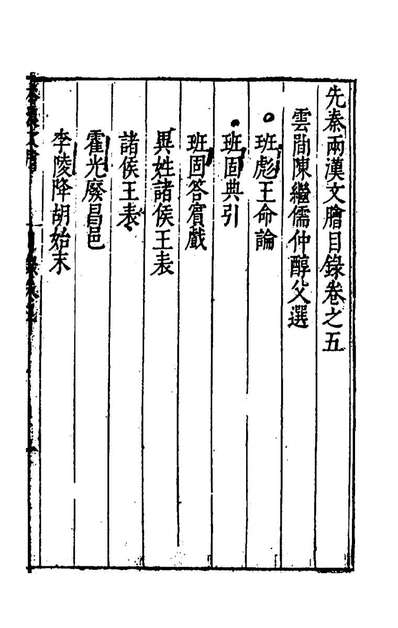 先秦兩漢文膾目錄卷之五
雲間陳繼儒仲醇父選
班彪王命論
班固典引
班固答賓戲
異姓諸侯王表
諸侯王表
霍光廢昌邑
李陵降胡始末